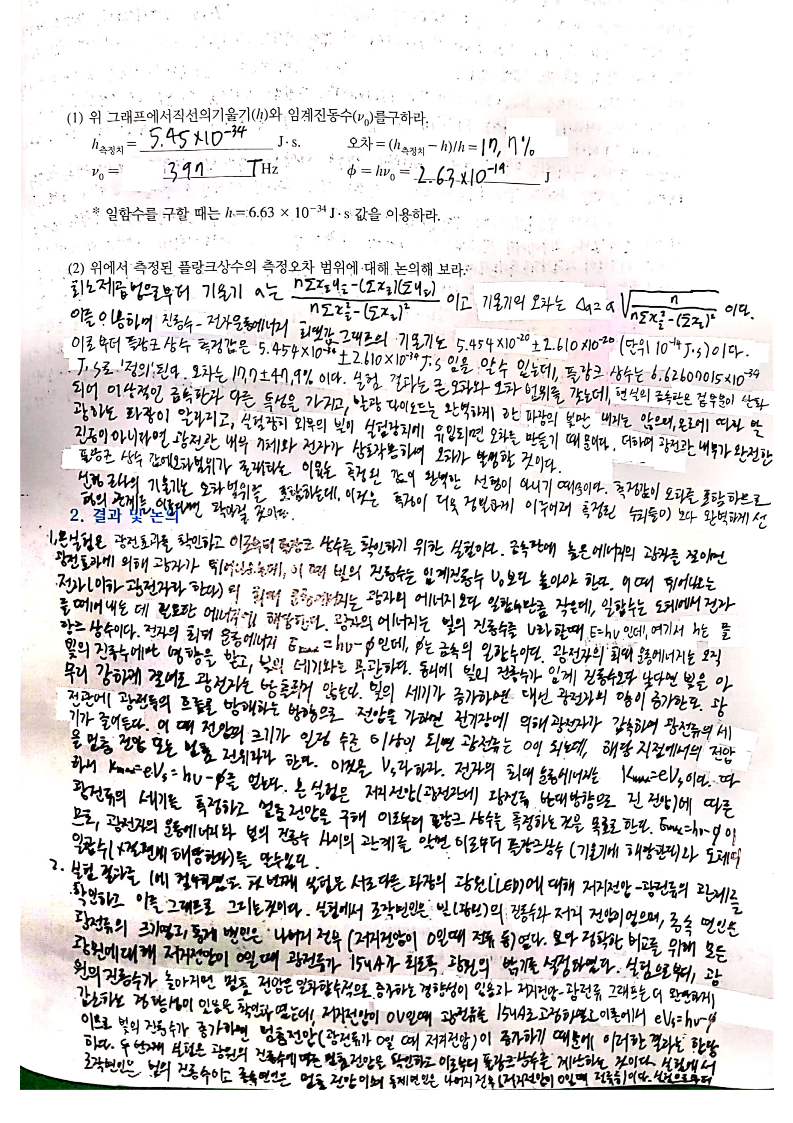 (1) 위 그래프에서직선의기울기(h)와 임계진동수(ν₀)를구하라.
h측정치 = 5.45×10⁻³⁴ J·s. 오차 = (h측정치 − h)/h = 17.7%
ν₀ = 397 THz ϕ = hν₀ = 2.63×10⁻¹⁹ J
* 일함수를 구할 때는 h = 6.63 × 10⁻³⁴ J·s 값을 이용하라.
(2) 위에서 측정된 플랑크상수의 측정오차 범위에 대해 논의해 보라.
최소제곱법으로부터 기울기 a는 (nΣxᵢyᵢ−(Σxᵢ)(Σyᵢ))/(nΣxᵢ²−(Σxᵢ)²) 이고 기울기의 오차는 Δa=a√(n/(nΣxᵢ²−(Σxᵢ)²)) 이다.
이를 이용하여 진동수-전자운동에너지 최댓값 그래프의 기울기는 5.454×10⁻²⁰±2.610×10⁻²⁰ (단위 10⁻¹⁴J·s)이다.
이로부터 플랑크 상수 측정값은 5.454×10⁻³⁴±2.610×10⁻³⁴J·s 임을 알수 있는데, 플랑크 상수는 6.62607015×10⁻³⁴
J·s로 '정의'된다. 오차는 17.7±47.9% 이다. 실험 결과는 큰 오차와 오차 범위를 갖는데, 현실의 금속판은 겉부분이 산화
되어 이상적인 금속판과 다른 특성을 가지고, 발광 다이오드는 완벽하게 한 파장의 빛만 내지는 않으며, 온도에 따라 발
광하는 파장이 달라지고, 실험장치 외부의 빛이 실험장치에 유입되면 오차를 만들기 때문이다. 더하여 광전관 내부가 완전한
진공이 아니라면 광전관 내부 기체와 전자가 상호작용하여 오차가 발생할 것이다.
플랑크 상수 값에오차범위가 존재하는 이유는 측정된 값이 완벽한 선형이 아니기 때문이다. 측정값이 오차를 포함하므로
선형 회귀의 기울기는 오차범위를 포함하는데, 이것은 측정이 더욱 정밀하게 이루어져 측정된 수치들이 보다 완벽하게 선
형의 관계를 이룬다면 작아질 것이다.
2. 결과 및 논의
1. 본실험은 광전효과를 확인하고 이로부터 플랑크 상수를 확인하기 위한 실험이다. 금속판에 높은에너지의 광자를 쪼이면
광전효과에 의해 광전자가 튀어나오는데, 이 때 빛의 진동수는 임계진동수 ν₀보다 높아야 한다. 이때 튀어나오는
전자(이하 광전자라 한다)의 최대 운동에너지는 광자의 에너지보다 일함수만큼 작은데, 일함수는 도체에서 전자
를 떼어내는 데 필요한 에너지에 해당한다. 광자의 에너지는 빛의 진동수를 ν라할때 E=hν인데, 여기서 h는 플
랑크 상수이다. 전자의 최대 운동에너지 Emax=hν−ϕ인데, ϕ는 금속의 일함수이다. 광전자의 최대 운동에너지는 오직
빛의 진동수에만 영향을 받고, 빛의 세기와는 무관하다. 동시에 빛의 진동수가 임계 진동수보다 낮다면 빛을 아
무리 강하게 걸어도 광전자는 방출되지 않는다. 빛의 세기가 증가하면 대신 광전자의 양이 증가한다. 광
전관에 광전류의 흐름을 방해하는 방향으로 전압을 가하면 전기장에 의해 광전자가 감속하여 광전류의 세
기가 줄어든다. 이 때 전압의 크기가 일정 수준 이상이 되면 광전류는 0이 되는데, 해당 지점에서의 전압
을 멈춤 전압 또는 멈춤 전위라 한다. 이것을 Vₛ라하자. 전자의 최대 운동에너지는 Kmax=eVₛ이다. 따
라서 Kmax=eVₛ=hν−ϕ를 얻는다. 본 실험은 저지전압(광전관에 광전류 반대방향으로 건 전압)에 따른
광전류의 세기를 측정하고 멈춤전압을 구해 이로부터 플랑크 상수를 측정하는 것을 목표로 한다. Emax=hν−ϕ이
므로, 광전자의 운동에너지와 빛의 진동수 사이의 관계를 알면 이로부터 플랑크상수(기울기에 해당한다)와 도체의
일함수(x절편에 해당한다)를 얻는다.
2. 실험 결과를 1에 첫 번째 실험은 서로다른 파장의 광원(LED)에 대해 저지전압-광전류의 관계를
확인하고 이를 그래프로 그리는것이다. 실험에서 조작변인은 빛(광원)의 진동수와 저지 전압이었으며, 종속 변인은
광전류의 크기였고 통제 변인은 나머지 전부(저지전압이 0일때 전류 등)였다. 보다 정확한 비교를 위해 모든
광원에대해 저지전압이 0일때 광전류가 15μA가 되도록 광원의 밝기를 설정하였다. 실험으로부터, 광
원의 진동수가 높아지면 멈춤 전압은 일차함수적으로 증가하는 경향성이 있음과 저지전압-광전류 그래프는 더 완만하게
감소하는 경향성이 있음을 확인하였는데, 저지전압이 0V일때 광전류를 15μA로 고정하였고 이론에서 eVₛ=hν−ϕ
이므로 빛의 진동수가 증가하면 멈춤전압(광전류가 0일 때 저지전압)이 증가하기 때문에 이러한 결과는 합당
하다. 두 번째 실험은 광원의 진동수에 따른 멈춤전압을 확인하고 이로부터 플랑크상수를 계산하는 것이다. 실험에서
조작변인은 빛의 진동수이고 종속변인은 멈춤 전압이며 통제변인은 나머지 전부(저지전압이 0일때 전류등)이다. 실험으로부터